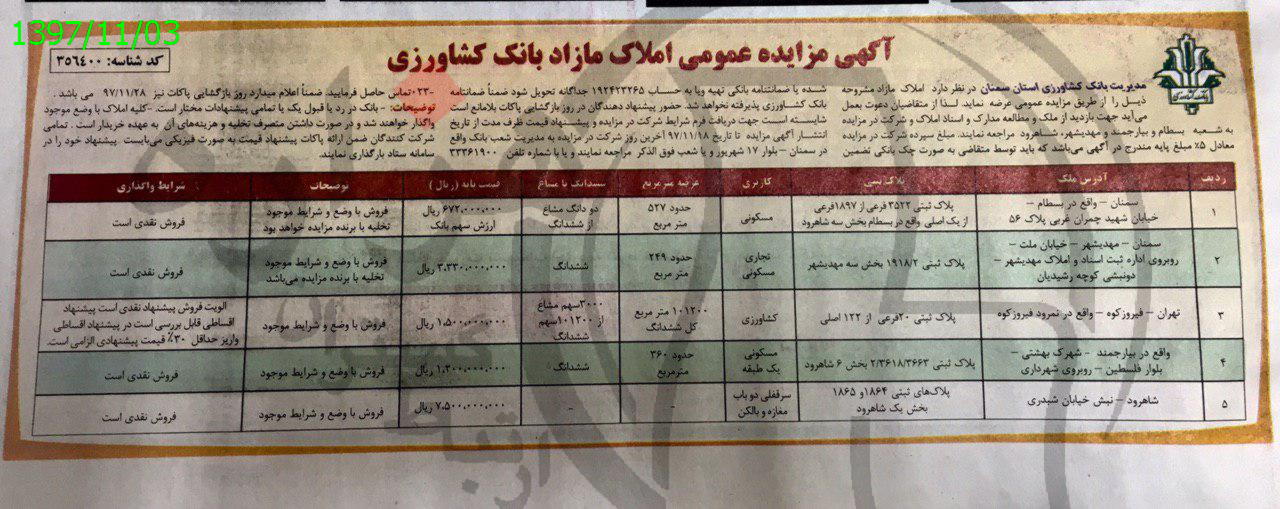 1397/11/03
آگهی مزایده عمومی املاک مازاد بانک کشاورزی
کد شناسه: ۳۵۶۴۰۰
مدیریت بانک کشاورزی استان سمنان در نظر دارد املاک مازاد مشروحه
ذیـل را از طریق مزایده عمومی عرضه نماید. لـذا از متقاضیان دعوت بعمل
می‌آید جهت بازدید از ملک و مطالعه مدارک و اسناد املاک و شرکت در مزایده
به شعبه بسطام و بیارجمند و مهدیشهر، شاهرود مراجعه نمایند. مبلغ سپرده شرکت در مزایده
معادل ۵٪ مبلغ پایه مندرج در آگهی می‌باشد که باید توسط متقاضی به صورت چک بانکی تضمین
شده یا ضمانتنامه بانکی تهیه ویا به حساب ۱۹۲۴۲۳۲۶۵ جداگانه تحویل شود ضمناً ضمانتنامه
بانک کشـاورزی پذیرفته نخواهد شد. حضور پیشنهاد دهندگان در روز بازگشایی پاکات بلامانع است
شایسته اسـت جهت دریافت فرم شرایط شرکت در مزایده و پیشنهاد قیمت ظرف مدت از تاریخ
انتشـار آگهی مزایده تا تاریخ ۹۷/۱۱/۱۸ آخرین روز شرکت در مزایده به مدیریت شعب بانک واقع
در سمنان – بلوار ۱۷ شهریور و یا شعب فوق الذکر مراجعه نمایند و یا با شماره تلفن ۳۳۳۶۱۹۰۰
-۰۲۳تماس حاصل فرمایید. ضمناً اعلام میدارد روز بازگشایی پاکات نیز ۹۷/۱۱/۲۸ می باشد .
توضیحات: - بانک در رد یا قبول یک یا تمامی پیشنهادات مختار است. -کلیه املاک با وضع موجود
واگذار خواهند شد و در صورت داشتن متصرف تخلیه و هزینه‌های آن به عهده خریدار است . تمامی
شرکت کنندگان ضمن ارائه پاکات پیشنهاد قیمت به صورت فیزیکی می‌بایست پیشنهاد خود را در
سامانه ستاد بارگذاری نمایند.
ردیف آدرس ملک پلاک ثبتی کاربری عرصه مترمربع ششدانگ یا مشاع قیمت پایه (ریال) توضیحات شرایط واگذاری
۱ سمنان – واقع در بسطام – خیابان شهید چمران غربی پلاک ۵۶ پلاک ثبتی ۳۵۲۲ فرعی از ۱۸۹۷فرعی از یک اصلی واقع در بسطام بخش سه شاهرود مسکونی حدود ۵۲۷ متر مربع دو دانگ مشاع از ششدانگ ۶۷۲,۰۰۰,۰۰۰ ریال ارزش سهم بانک فروش با وضع و شرایط موجود تخلیه با برنده مزایده خواهد بود فروش نقدی است
۲ سمنان – مهدیشهر – خیابان ملت – روبروی اداره ثبت اسناد و املاک مهدیشهر – دونبشی کوچه رشیدیان پلاک ثبتی ۱۹۱۸/۲ بخش سه مهدیشهر تجاری مسکونی حدود ۲۴۹ متر مربع ششدانگ ۳,۳۳۰,۰۰۰,۰۰۰ ریال فروش با وضع و شرایط موجود تخلیه با برنده مزایده می‌باشد فروش نقدی است
۳ تهران – فیروزکوه – واقع در نمرود فیروزکوه پلاک ثبتی ۲۰فرعی از ۱۲۲ اصلی کشاورزی ۱۰۱۲۰۰ متر مربع کل ششدانگ ۳۰۰۰سهم مشاع از ۱۰۱۲۰۰سهم ششدانگ ۱,۵۰۰,۰۰۰,۰۰۰ ریال فروش با وضع و شرایط موجود الویت فروش پیشنهاد نقدی است پیشنهاد اقساطی قابل بررسی است در پیشنهاد اقساطی واریز حداقل ۳۰٪ قیمت پیشنهادی الزامی است.
۴ واقع در بیارجمند - شهرک بهشتی – بلوار فلسطین – روبروی شهرداری پلاک ثبتی ۲/۳۶۱۸/۳۶۶۳ بخش ۶ شاهرود مسکونی یک طبقه حدود ۳۶۰ مترمربع ششدانگ ۱,۳۰۰,۰۰۰,۰۰۰ ریال فروش با وضع و شرایط موجود فروش نقدی است
۵ شاهرود – نبش خیابان شیدری پلاک‌های ثبتی ۱۸۶۴و ۱۸۶۵ بخش یک شاهرود سرقفلی دو باب مغازه و بالکن - - ۷,۵۰۰,۰۰۰,۰۰۰ ریال فروش با وضع و شرایط موجود فروش نقدی است